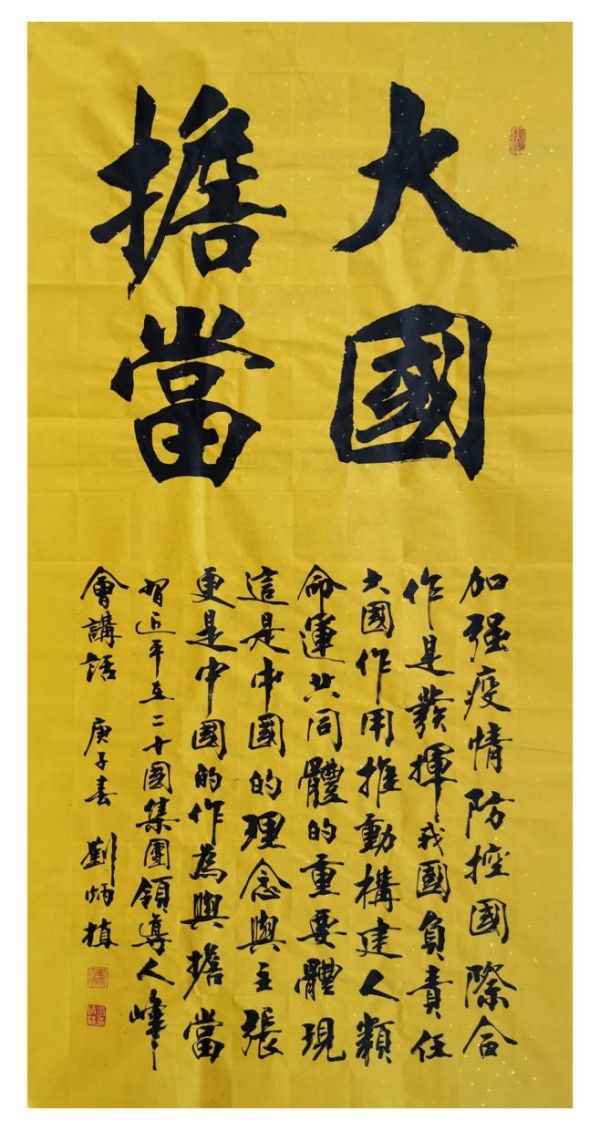 大國
擔當
加强疫情防控國際合
作是發揮我國負責任
大國作用推動構建人類
命運共同體的重要體現
這是中國的理念與主張
更是中國的作為與擔當
習近平在二十國集團領導人峰
會講話 庚子春 劉炳楨